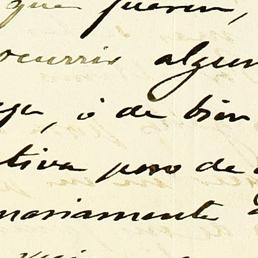 que fueren,
ocurrir algun
o de bien
tiva pero de
nariamente